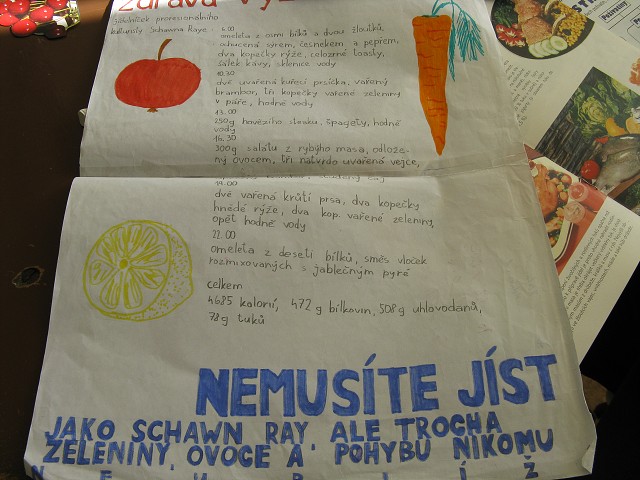 Zdravá
Jídelníček profesionálního
kulturisty Schawna Raye:
6.00
omeleta z osmi bílků a dvou žloutků,
ochucená sýrem, česnekem a pepřem,
dva kopečky rýže, celozrné toasty,
šálek kávy, sklenice vody
10.30
dvě uvařená kuřecí prsíčka, vařený
brambor, tři kopečky vařené zeleniny
v páře, hodně vody
13.00
250g hovězího steaku, špagety, hodně
vody
16.30
300g salátu z rybýho masa, odlože-
ný ovocem, tři natvrdo uvařená vejce,
19.00
dvě vařená krůtí prsa, dva kopečky
hnědé rýže, dva kop. vařené zeleniny,
opět hodně vody
22.00
omeleta z deseti bílků, směs vloček
rozmixovaných s jablečným pyré
celkem
4685 kalorií, 472g bílkovin, 508g uhlovodanů,
78g tuků
NEMUSÍTE JÍST
JAKO SCHAWN RAY, ALE TROCHA
ZELENINY, OVOCE A POHYBU NIKOMU
N E U B L Í Ž